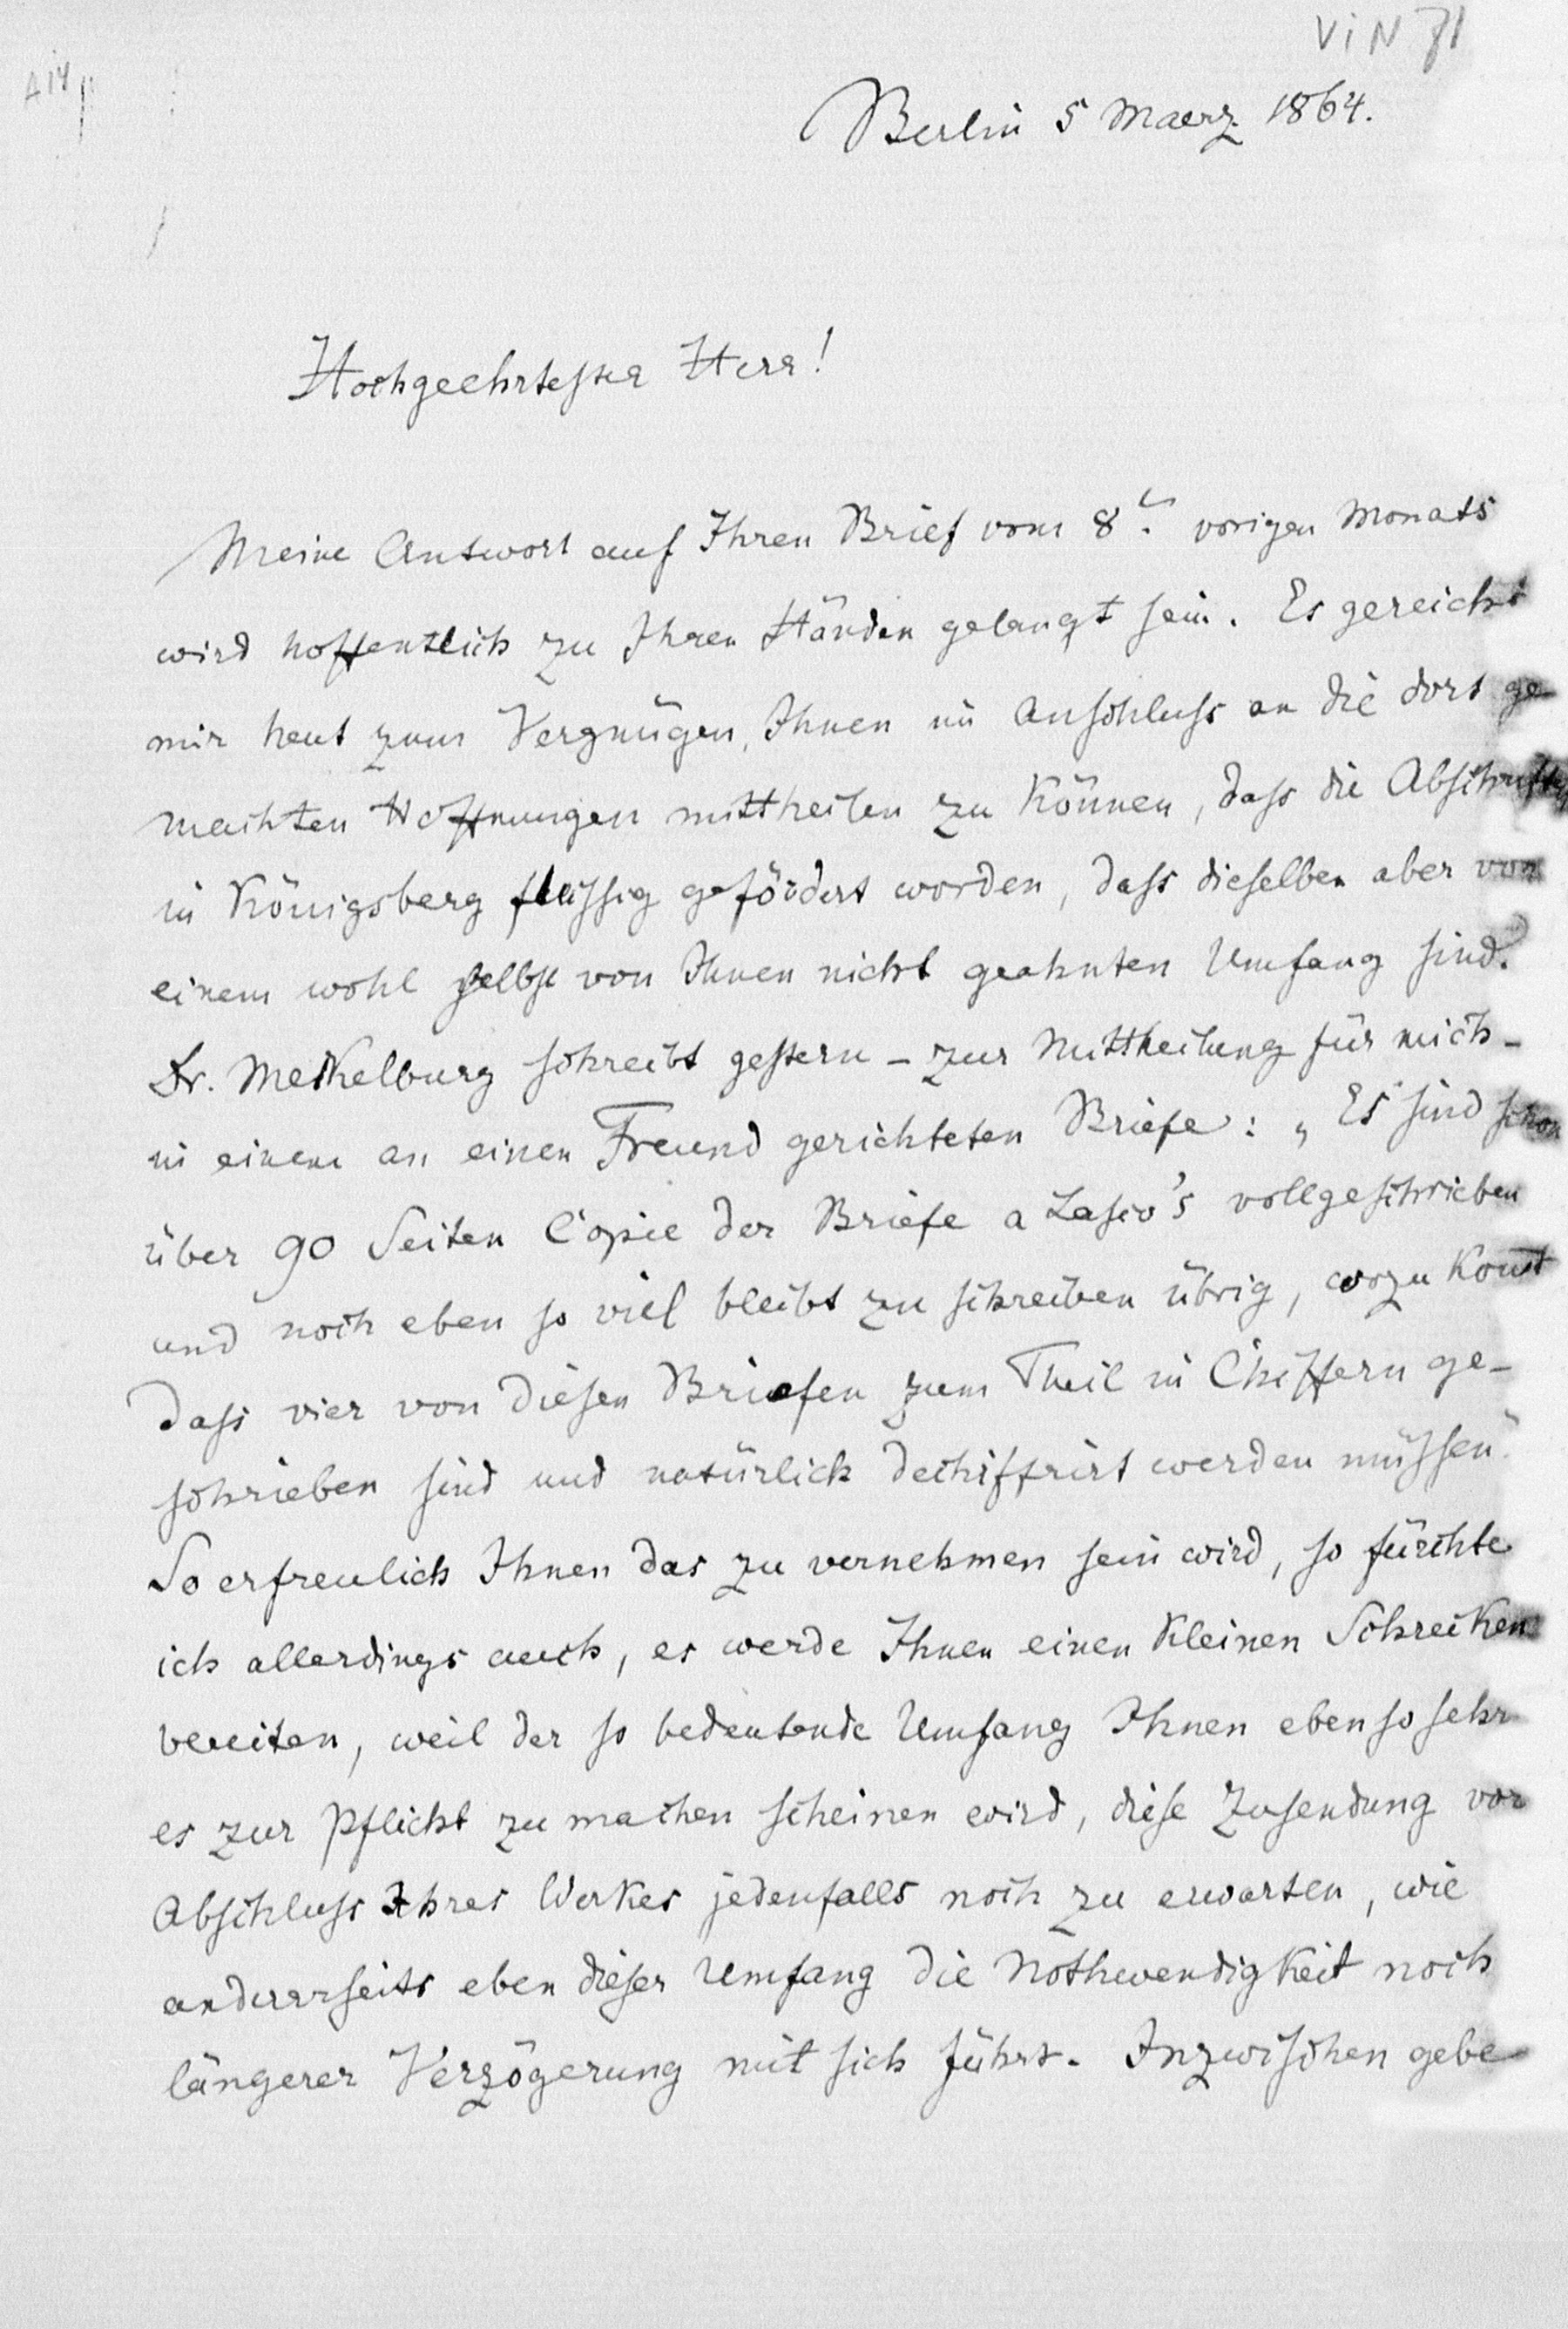 VIN 71
A14
Berlin 5 Maerz 1864.
Hochgeehrtester Herr!
Meine Antwort auf Ihren Brief vom 8t. vorigen Monats
wird hoffentlich zu Ihren Händen gelangt sein. Es gereicht
mir heut zum Vergnügen, Ihnen im Anschluss an die dort ge-
machten Hoffnungen mittheilen zu können, dass die Abschriften
in Königsberg fleissig gefördert worden, dass dieselben aber von
einem wohl selbst von Ihnen nicht geahnten Umfang sind.
Dr. Meckelburg schreibt gestern - zur Mittheilung für mich -
in einem an einen Freund gerichteten Briefe: „Es sind schon
über 90 Seiten Copie der Briefe a Lasco's vollgeschrieben
und noch eben so viel bleibt zu schreiben übrig, wozu komt
dass vier von diesen Briefen zum Theil in Chiffern ge-
schrieben sind und natürlich dechiffrirt werden müssen."
So erfreulich Ihnen das zu vernehmen sein wird, so fürchte
ich allerdings auch, es werde Ihnen einen kleinen Schrecken
bereiten, weil der so bedeutende Umfang Ihnen ebenso sehr
es zur Pflicht zu machen scheinen wird, diese Zusendung vor
Abschluss Ihres Werkes jedenfalls noch zu erwarten, wie
andererseits eben dieser Umfang die Nothwendigkeit noch
längerer Verzögerung mit sich führt. Inzwischen gebe